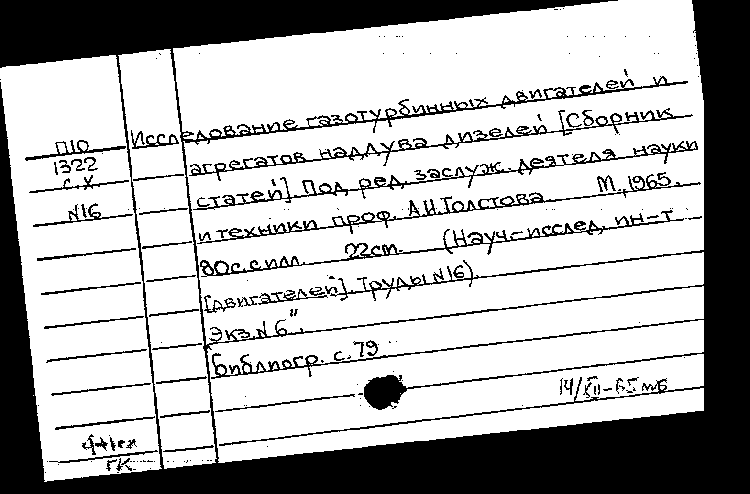 Исследование газотурбинных двигателей и
П10
агрегатов наддува дизелей [Сборник
1322
с.х.
статей]. Под ред. заслуж. деятеля науки
N16
и техники проф. А.И.Толстова. М., 1965.
80с. с илл. 22см. (Науч.-исслед. ин-т
[двигателей]. Труды N16).
Экз. N 6".
Библиогр. с. 79
14/XII-65
ГК